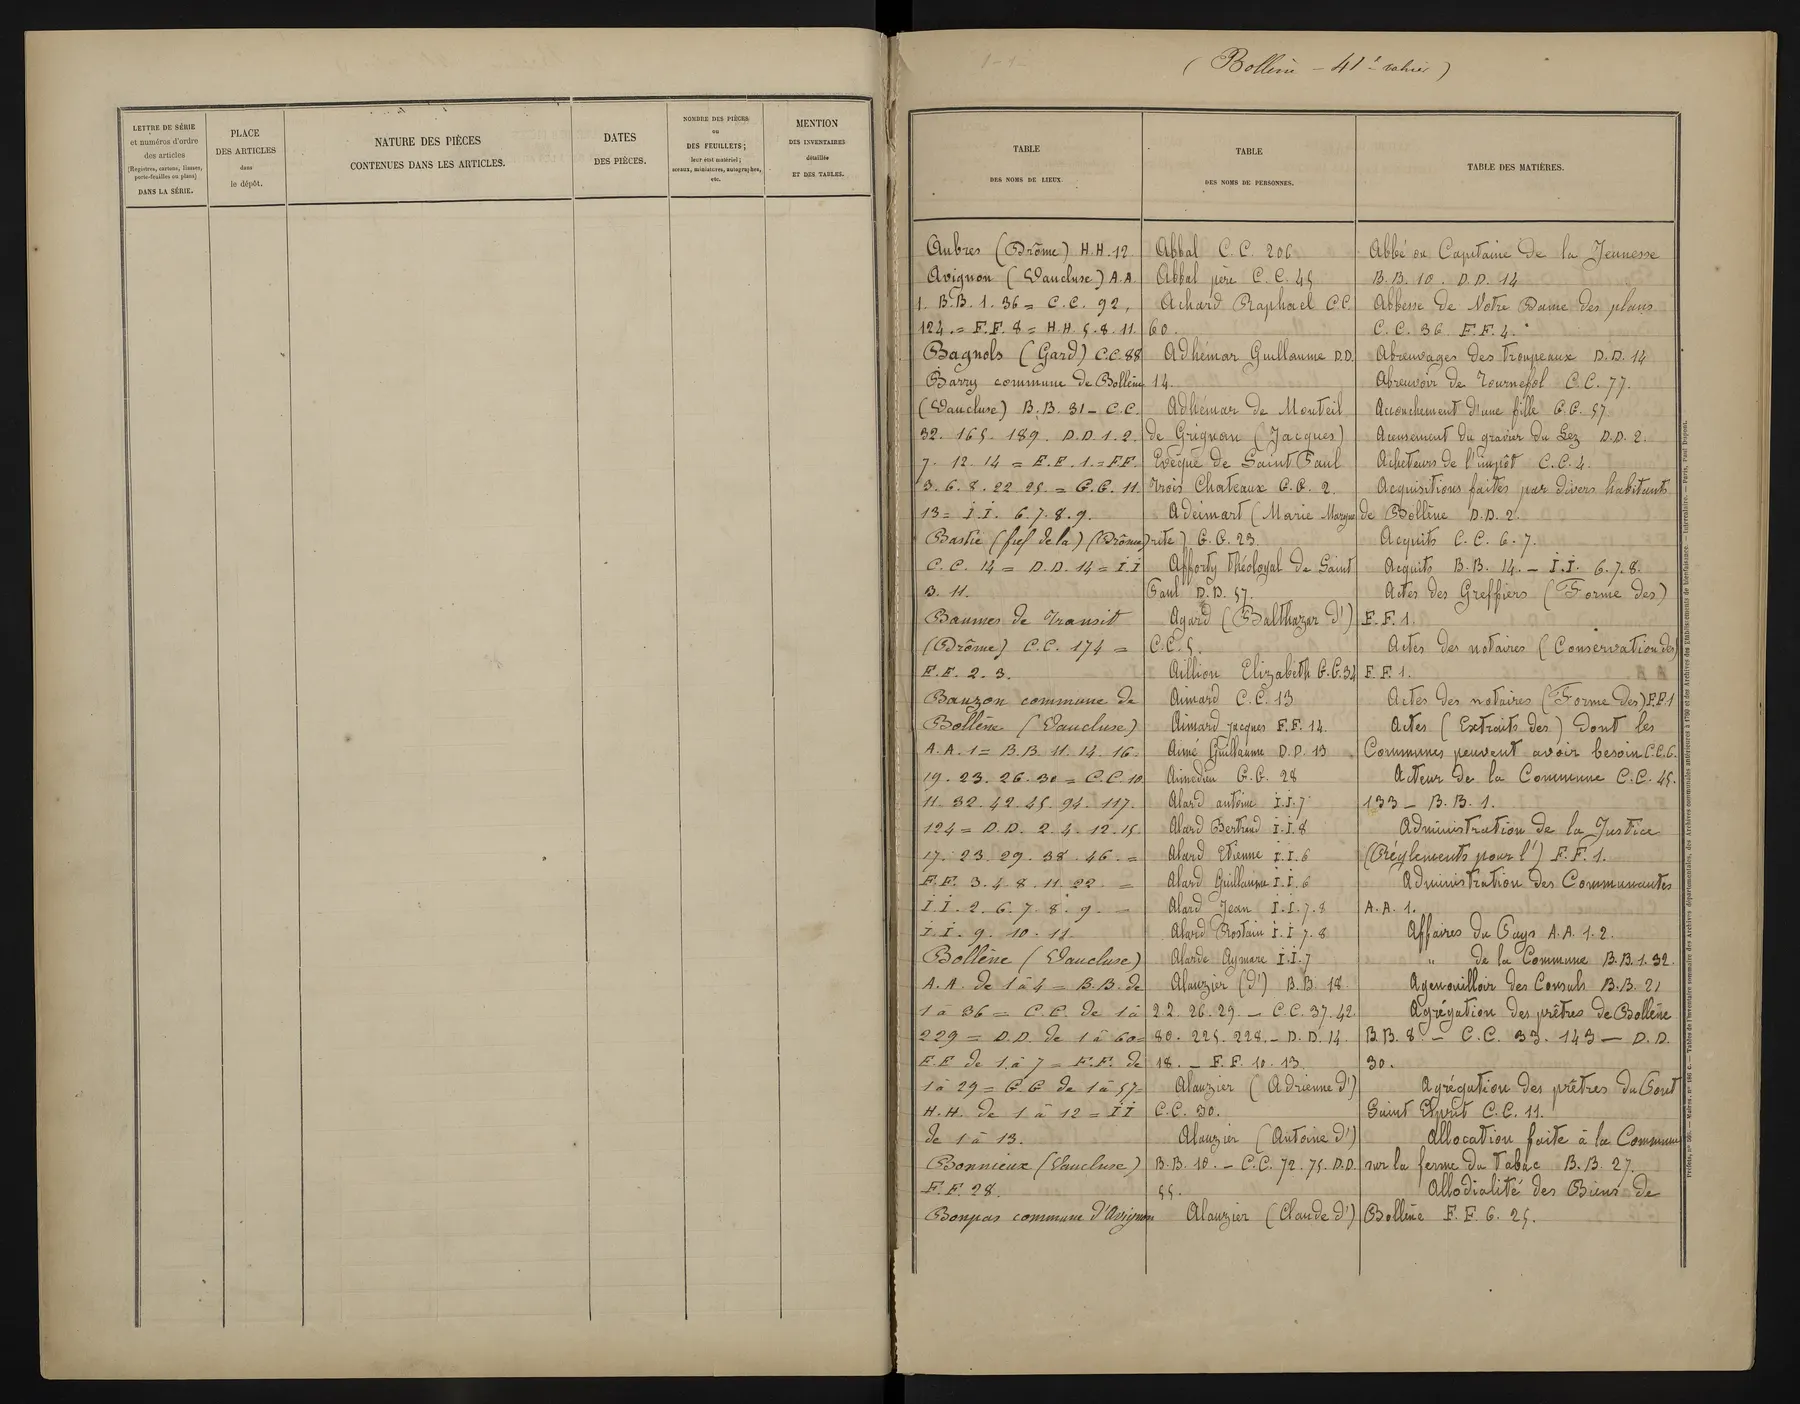 LETTRE DE SÉRIE
et numéros d'ordre
des articles
(Registres, cartons, liasses,
porte-feuilles ou plans)
DANS LA SÉRIE.
PLACE
DES ARTICLES
dans
le dépôt.
NATURE DES PIÈCES
CONTENUES DANS LES ARTICLES.
DATES
DES PIÈCES.
NOMBRE DES PIÈCES
ou
DES FEUILLETS;
leur état matériel;
sceaux, miniatures, autographes,
etc.
MENTION
DES INVENTAIRES
détaillés
ET DES TABLES.
(Bollène - 41e cahier)
TABLE
DES NOMS DE LIEUX.
Aubres (Drôme) H.H. 12
Avignon (Vaucluse) A.A.
1. B.B. 1. 36 = C.C. 92,
124. = F.F. 8 = H.H. 5. 8. 11.
Bagnols (Gard) C.C. 88
Barry commune de Bollène
(Vaucluse) B.B. 31 - C.C.
32. 165. 189. D.D. 1. 2.
7. 12. 14 = E.E. 1. = F.F.
3. 6. 8. 22. 25. = G.G. 11.
13 = I.I. 6. 7. 8. 9.
Bastie (fief de la) (Drôme)
C.C. 14 = D.D. 14 = I.I
3. 11.
Baumes de Transit
(Drôme) C.C. 174 =
E.E. 2. 3.
Bauzon commune de
Bollène (Vaucluse)
A.A. 1 = B.B. 11. 14. 16.
19. 23. 26. 30 = C.C. 10.
11. 32. 42. 45. 94. 117.
124 = D.D. 2. 4. 12. 15.
17. 23. 29. 38. 46. =
F.F. 3. 4. 8. 11. 22. =
I.I. 2. 6. 7. 8. 9. -
I.I. 9. 10. 11.
Bollène (Vaucluse)
A.A. de 1 à 4 = B.B. de
1 à 36 = C.C. de 1 à
229 = D.D. de 1 à 60 =
E.E de 1 à 7 = F.F. de
1 à 29 = G.G de 1 à 57 =
H.H. de 1 à 12 = I.I
de 1 à 13.
Bonnieux (Vaucluse)
F.F. 28.
Bonpas commune d'Avignon
TABLE
DES NOMS DE PERSONNES.
Abbal C.C. 206
Abbal père C.C. 45
Achard Raphael C.C.
60.
Adhémar Guillaume D.D.
14.
Adhémar de Monteil
de Grignan (Jacques)
Evêque de Saint Paul
Trois Chateaux G.G. 2.
Adeimart (Marie Margue
rite) G.G. 23.
Afforty théologal de Saint
Paul D.D. 57.
Agard (Balthazar d')
C.C. 5.
Aillion Elizabeth G.G. 34
Aimard C.C. 13
Aimard Jacques F.F. 14.
Aimé Guillaume D.D. 13
Aimedieu G.G. 28
Alard antoine I.I. 7
Alard Bertrand I.I. 8
Alard Etienne I.I. 6
Alard Guillaume I.I. 6
Alard Jean I.I. 7. 8
Alard Rostain I.I 7. 8
Alarde Aymare I.I. 7
Alauzier (d') B.B. 18
22. 26. 29. - C.C. 37. 42.
80. 225. 228. - D.D. 14.
18. - F.F. 10. 13.
Alauzier (Adrienne d')
C.C. 30.
Alauzier (Antoine d')
B.B. 10. - C.C. 72. 75. D.D.
55.
Alauzier (Claude d')
TABLE DES MATIÈRES.
Abbé ou Capitaine de la Jeunesse
B.B. 10. D.D. 14
Abbesse de Notre Dame des plans
C.C. 36. F.F. 4.
Abreuvages des troupeaux D.D. 14
Abreuvoir de Tournefol C.C. 77.
Accouchement d'une fille G.G. 57
Acensement du gravier du Lez D.D. 2.
Acheteurs de l'impôt C.C. 4.
Acquisitions faites par divers habitants
de Bollène D.D. 2.
Acquits C.C. 6. 7.
Acquits B.B. 14. - I.I. 6. 7. 8.
Actes des Greffiers (Forme des)
F.F. 1.
Actes des notaires (Conservation des)
F.F. 1.
Actes des notaires (Forme des) F.F. 1
Actes (Extraits des) dont les
Communes peuvent avoir besoin C.C. 6.
Acteur de la Commune C.C. 45.
133 - B.B. 1.
Administration de la Justice
(Réglements pour l') F.F. 1.
Administration des Communautes
A.A. 1.
Affaires du Pays A.A. 1. 2.
" de la Commune B.B. 1. 32.
Agenouilloir des Consuls B.B. 21
Agrégation des prêtres de Bollène
B.B. 8. - C.C. 33. 143 - D.D.
30.
Agrégation des prêtres du Pont
Saint Esprit C.C. 11.
Allocation faite à la Commune
sur la ferme du tabac B.B. 27.
Allodialité des Biens de
Bollène F.F. 6. 25.